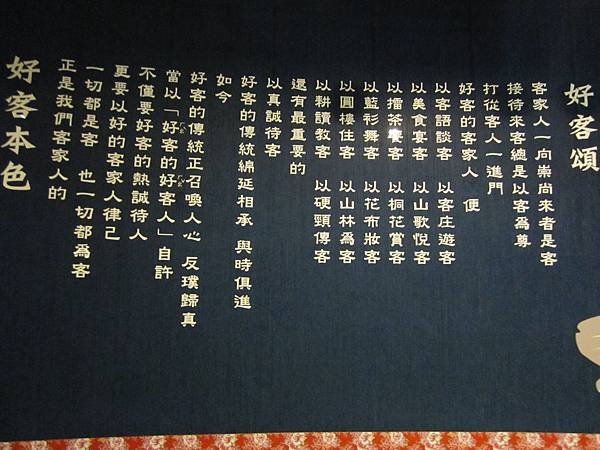 好客頌
客家人一向崇尚來者是客
接待來客總是以客為尊
打從客人一進門
好客的客家人　便
以客語談客　以客庄遊客
以美食宴客　以山歌悅客
以擂茶饗客　以桐花賞客
以藍彩舞客　以花布妝客
以圓樓住客　以山林為客
以耕讀教客　以硬頸傳客
還有最重要的
以真誠待客
好客的傳統綿延相承　與時俱進
如今
好客的傳統正召喚人心　反璞歸真
當以「好客的好客人」自許
不僅要好客的熱誠待人
更要以好的客家人律己
一切都是客　也一切都為客
正是我們客家人的
好客本色